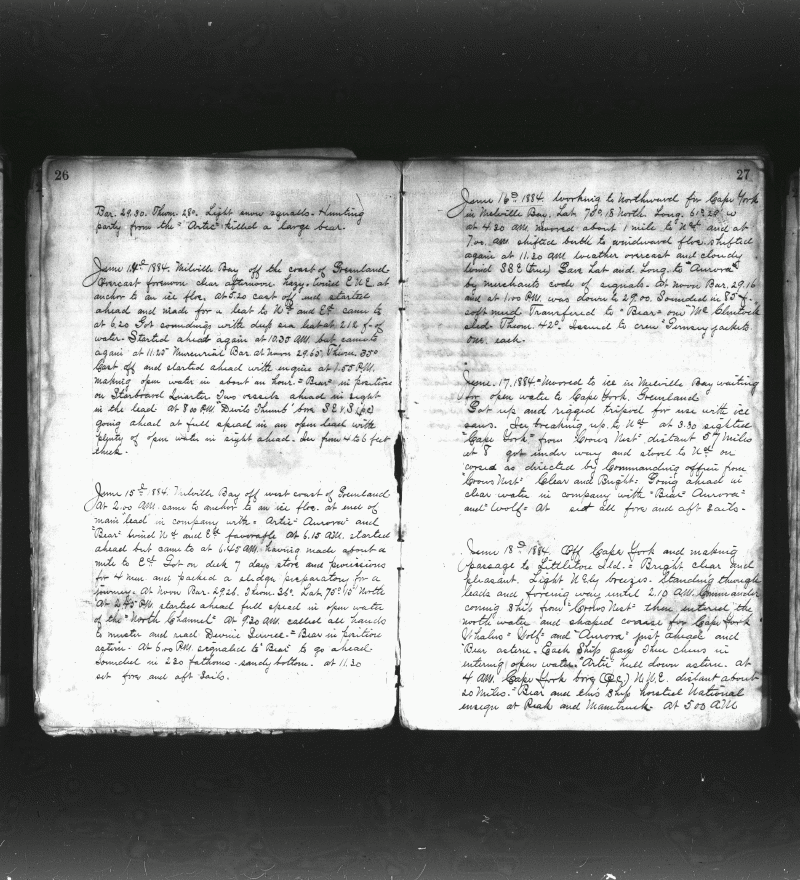 26
Bar. 29.30. Thom. 28°. Light snow squalls. Hunting
party from the "Artic" killed a large bear.
June 14th 1884. Milville Bay off the coast of Greenland
Overcast forenoon clear afternoon. Hazy. Wind E.N.E. at
anchor to an ice floe. At 5.20 cast off and started
ahead and made for a lead to Nd and Ed came to
at 6.20 Got soundings with deep sea lead at 212 f- of
water. Started ahead again at 10.35 AM. but came to
again at 11.25 Mercurial Bar. at Noon 29.65. Thom. 35°
Cast off and started ahead with engine at 1.55 P.M.
making open water in about an hour. "Bear" in position
on Starboard Quarter. Two vessels ahead in sight
in the lead. At 8.00 P.M. Devils Thumb bore
going ahead at full speed in an open lead with
plenty of open water in sight ahead. Ice from 4 to 6 feet
thick.
June 15th 1884. Milville Bay off west coast of Greenland
At 2.00 A.M. came to anchor to an ice floe. at end of
main lead in company with "Artic" Aurora" and
"Bear" Wind Nd and Ed favorable At 6.15 A.M. started
ahead but came to at 6.45 AM. having made about a
mile to Ed Got on deck 7 days store and provisions
for 4 men and packed a sledge preparatory for a
journey. At Noon Bar. 29.26. Thom. 36°. Lat. 75° 15' North
At 2.45 P.M. started ahead full speed in open water
of the "North Channel" At 9.20 A.M. called all hands
to muster and read Devine Service. "Bear" in position
astern. At 6.00 P.M. signaled to "Bear" to go ahead.
Sounded in 220 fathoms. sandy bottom. at 11.30
set fore and aft sails.
27
June 16th 1884. Working to Northward for Cape York
in Melville Bay. Lat. 75° 18 North. Long. 61° 29' W
at 4.20 AM. moored about 1 mile to Nd and at
7.00 AM shifted berth to windward floe. shifted
again at 11.20 AM. weather overcast and cloudy
wind SSE (true) Gave Lat and Long. to "Aurora"
by merchants code of signals. At noon Bar. 29.16
and at 1.00 P.M. was down to 29.00. Sounded in 85 f.
soft mud. Transfered to "Bear" one Mc Clintock
sled. Thom. 42°. Issued to crew Gernsey jackets.
one each.
June. 17. 1884. Moored to ice in Melville Bay waiting
for open water to Cape York. Greenland
Got up and rigged tripod for use with ice
saws. Ice breaking up to Nd At 3.30 sighted
"Cape York" from "Crows Nest" distant 57 Miles
at 8 got under way and stood to Nd on
course as directed by Commanding officer from
"Crows Nest" Clear and Bright. Going ahead in
clear water in company with "Bear" Aurora"
and "Wolf" At set all fore and aft Sails.
June 18th 1884. Off Cape York and making
passage to Littleton Isd. Bright clear and
pleasant. Light N.Ely breezes. Standing through
leads and forcing way until 2.10 AM. Commander
coning Ship from "Crows Nest" then entered the
north water and shaped course for Cape York
Whalers "Wolf" and "Aurora" just ahead and
Bear astern. Each Ship gave Three cheers in
entering open water. "Artic" hull down astern. At
4 AM. Cape York bore N.N.E. distant about
20 Miles. "Bear" and this Ship hoisted National
ensign at Peak and Maintruck. At 5 00 A.M